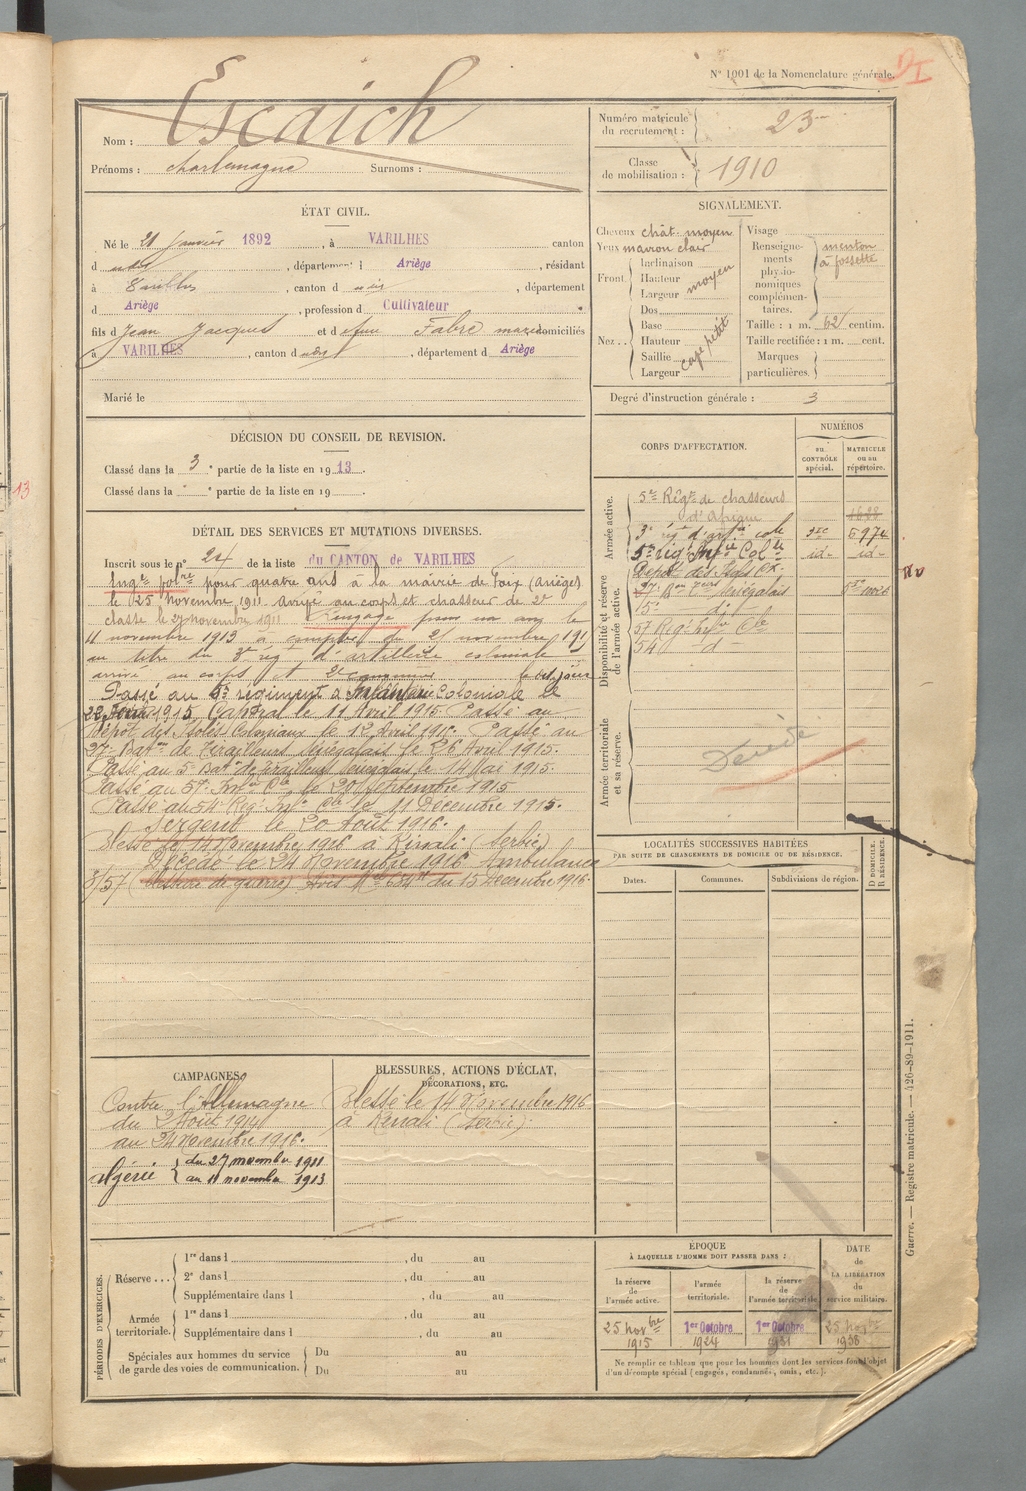 N° 1001 de la Nomenclature générale.
DI
Nom : Escaich
Prénoms : Charlemagne Surnoms :
Numéro matricule du recrutement : 23
Classe de mobilisation : 1910
ÉTAT CIVIL.
Né le 21 Janvier 1892, à VARILHES canton
d udit, département d Ariège, résidant
à Varilhes, canton d udit, département
d Ariège, profession d Cultivateur
fils d Jean Jacques et d Fabre domiciliés
à VARILHES, canton d udit, département d Ariège
Marié le
SIGNALEMENT.
Cheveux chât. moyen
Yeux marron clair
Front Inclinaison
Hauteur moyen
Largeur
Nez Dos
Base
Hauteur
Saillie
Largeur
Visage
Renseignements physionomiques complémentaires. menton à fossette
Taille : 1 m. 62 centim.
Taille rectifiée : 1 m. cent.
Marques particulières.
Degré d'instruction générale : 3
DÉCISION DU CONSEIL DE REVISION.
Classé dans la 3e partie de la liste en 1913.
Classé dans la " e partie de la liste en 19
DÉTAIL DES SERVICES ET MUTATIONS DIVERSES.
Inscrit sous le n° 24 de la liste du CANTON de VARILHES
Engé volre pour quatre ans à la mairie de Foix (Ariège)
le 25 novembre 1911 Arrivé au corps et chasseur de 2e
classe le 27 novembre 1911 Rengagé pour un an le
11 novembre 1913 à compter du 25 novembre 191
au titre du 3e régt d'artillerie coloniale
arrivé au corps et 2e canonnier le dit jour
Passé au 5e régiment d'Infanterie Coloniale le
22 1915. Caporal le 11 Avril 1915. Passé au
Dépôt des Isolés Coloniaux le 12 Avril 1915. Passé au
27e Baton de Tirailleurs Sénégalais le 26 Avril 1915.
Passé au 5e Baton de Tirailleurs Sénégalais le 14 Mai 1915.
Passé au 57e Infie Cle le 20 Septembre 1915
Passé au 54e Régt Infie Cle le 11 Décembre 1915.
Sergent le 20 Août 1916.
Blessé le 14 Novembre 1916 à Kénali (Serbie)
Décédé le 24 Novembre 1916 Ambulance
3/57 (blessure de guerre) Avis du 15 Décembre 1916.
CORPS D'AFFECTATION.
NUMÉROS
au CONTRÔLE spécial.
MATRICULE ou au répertoire.
Armée active.
5e Régt de chasseurs
d'Afrique 4628
3e régt d'artie cole 5974
5e régt Infie Cole id- id-
Disponibilité et réserve de l'armée active.
Dépôt des Isolés Cx.
27 Bon Teurs Sénégalais
5e d°
57 Régt Infie Cle
54 d°
Armée territoriale et sa réserve.
Décédé
LOCALITÉS SUCCESSIVES HABITÉES
PAR SUITE DE CHANGEMENTS DE DOMICILE OU DE RÉSIDENCE.
Dates. Communes. Subdivisions de région. D DOMICILE. R RÉSIDENCE.
CAMPAGNES.
Contre l'Allemagne
du 2 Août 1914
au 24 Novembre 1916.
Algérie du 27 novembre 1911
au 11 novembre 1913
BLESSURES, ACTIONS D'ÉCLAT,
DÉCORATIONS, ETC.
Blessé le 14 Novembre 1916
à Kénali (Serbie)
PÉRIODES D'EXERCICES.
Réserve... 1re dans l , du au
2e dans l , du au
Supplémentaire dans l , du au
Armée territoriale. 1re dans l , du au
Supplémentaire dans l , du au
Spéciales aux hommes du service de garde des voies de communication. Du au
Du au
ÉPOQUE
À LAQUELLE L'HOMME DOIT PASSER DANS :
la réserve de l'armée active.
l'armée territoriale.
la réserve de l'armée territoriale.
DATE de LA LIBÉRATION du service militaire.
25 Novbre 1915
1er Octobre 1924
1er Octobre 1931
25 Novbre 1936
Ne remplir ce tableau que pour les hommes dont les services font l'objet
d'un décompte spécial (engagés, condamnés, omis, etc.).
Guerre. — Registre matricule. — 426-89-1911.
13